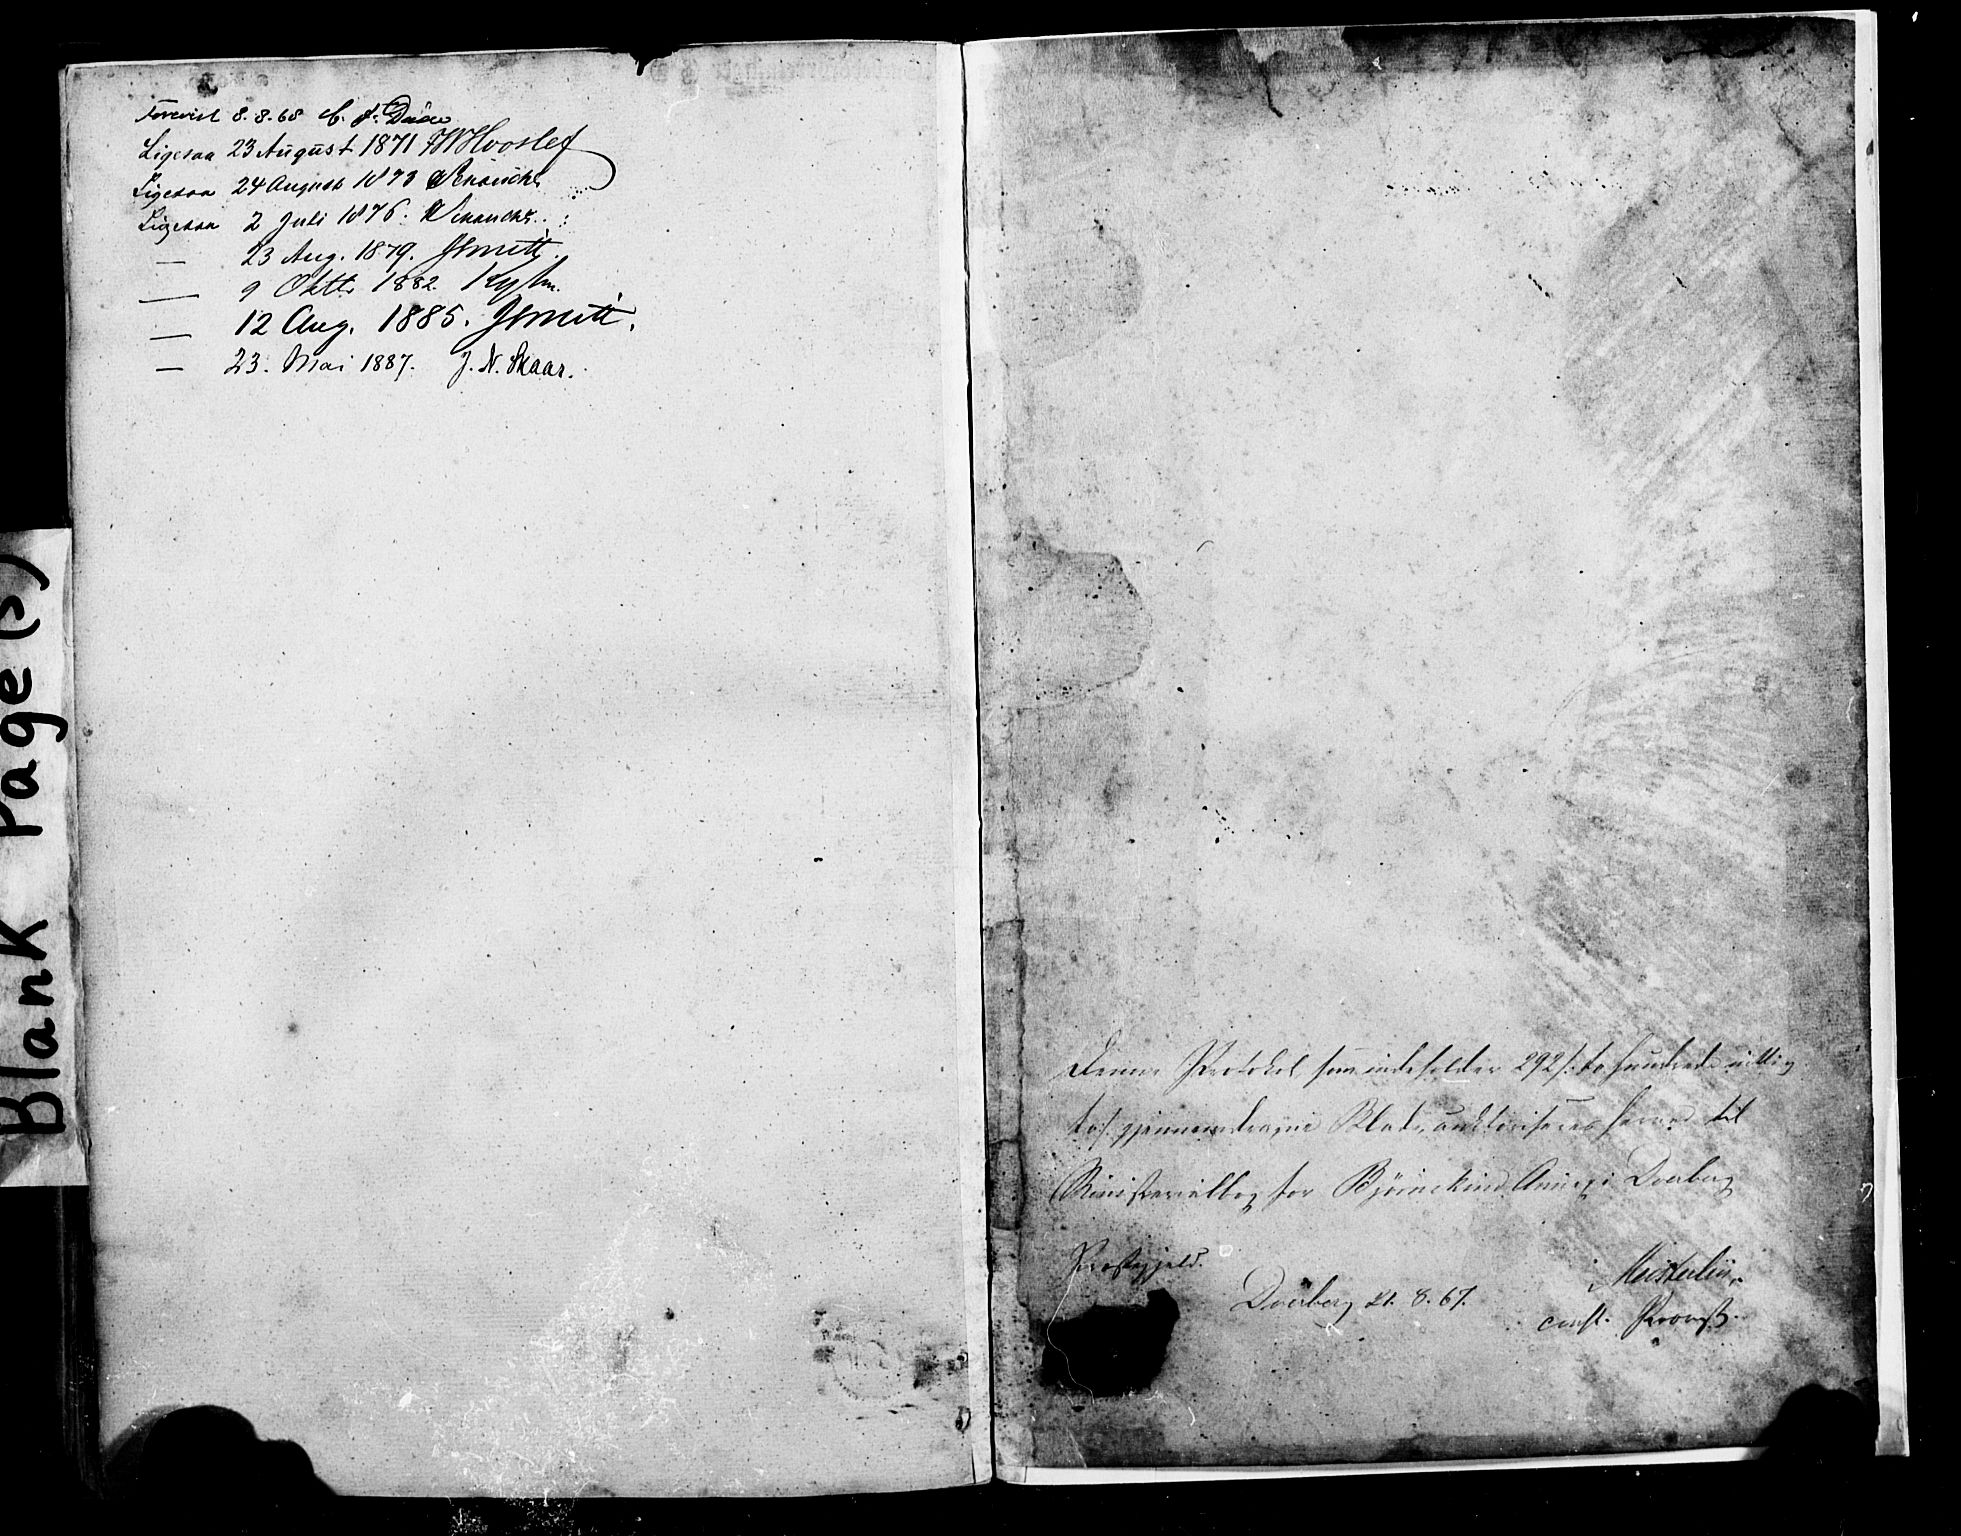 Forevist 8.8.68 C. F.
Ligesaa 23 August 1871 FWHvoslef
Ligesaa 24 August 1873
Ligesaa 2 Juli 1876.
— 23 Aug. 1879. JSmitt.
— 9 Oktbr 1882.
— 12 Aug. 1885. JSmitt.
— 23. Mai 1887. J. N. Skaar.
Blank Page(s)
Denne Protokol, som indeholder 292 /: to hundrede nitti og
to :/ gjennemdragne Blade, auktoriseres herved til
Ministerialbog for Bjørnskind Annex i Dverberg
Præstegjeld.
Dverberg 21. 8. 67.
const. Provst.